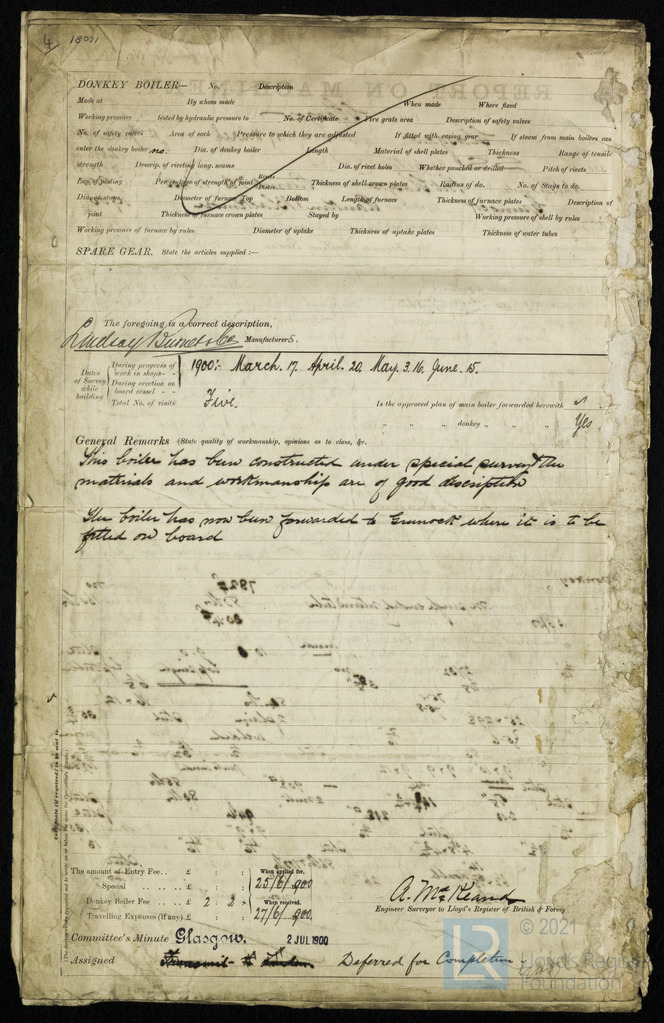 4 18071
DONKEY BOILER— No. Description
Made at By whom made When made Where fixed
Working pressure tested by hydraulic pressure to No. of Certificate Fire grate area Description of safety valves
No. of safety valves Area of each Pressure to which they are adjusted If fitted with easing gear If steam from main boilers can
enter the donkey boiler no. Dia. of donkey boiler Length Material of shell plates Thickness Range of tensile
strength Descrip. of riveting long. seams Dia. of rivet holes Whether punched or drilled Pitch of rivets
Lap of plating Per centage of strength of joint Rivets Plates Thickness of shell crown plates Radius of do. No. of Stays to do.
Dia. of stays. Diameter of furnace Top Bottom Length of furnace Thickness of furnace plates Description of
joint Thickness of furnace crown plates Stayed by Working pressure of shell by rules
Working pressure of furnace by rules Diameter of uptake Thickness of uptake plates Thickness of water tubes
SPARE GEAR. State the articles supplied:—
The foregoing is a correct description,
Lindsay Burnet & Co Manufacturers.
Dates of Survey while building
During progress of work in shops - - 1900:- March. 17. April. 20. May. 3. 16. June. 15.
During erection on board vessel - -
Total No. of visits Five.
Is the approved plan of main boiler forwarded herewith
" " " donkey " " " Yes
General Remarks (State quality of workmanship, opinions as to class, &c.
This boiler has been constructed under special survey & the
materials and workmanship are of good discription
The boiler has now been forwarded to Greenock where it is to be
fitted on board
The amount of Entry Fee.. £ : : When applied for,
Special .. .. £ : : 25/6/900
Donkey Boiler Fee .. £ 2 : 2 : When received,
Travelling Expenses (if any) £ : : 27/6/900
A. McKeand
Engineer Surveyor to Lloyd's Register of British & Foreign
Committee's Minute Glasgow. 2 JUL 1900
Assigned Transmit to London Deferred for Completion
LR © 2021
Lloyd's Register
Foundation